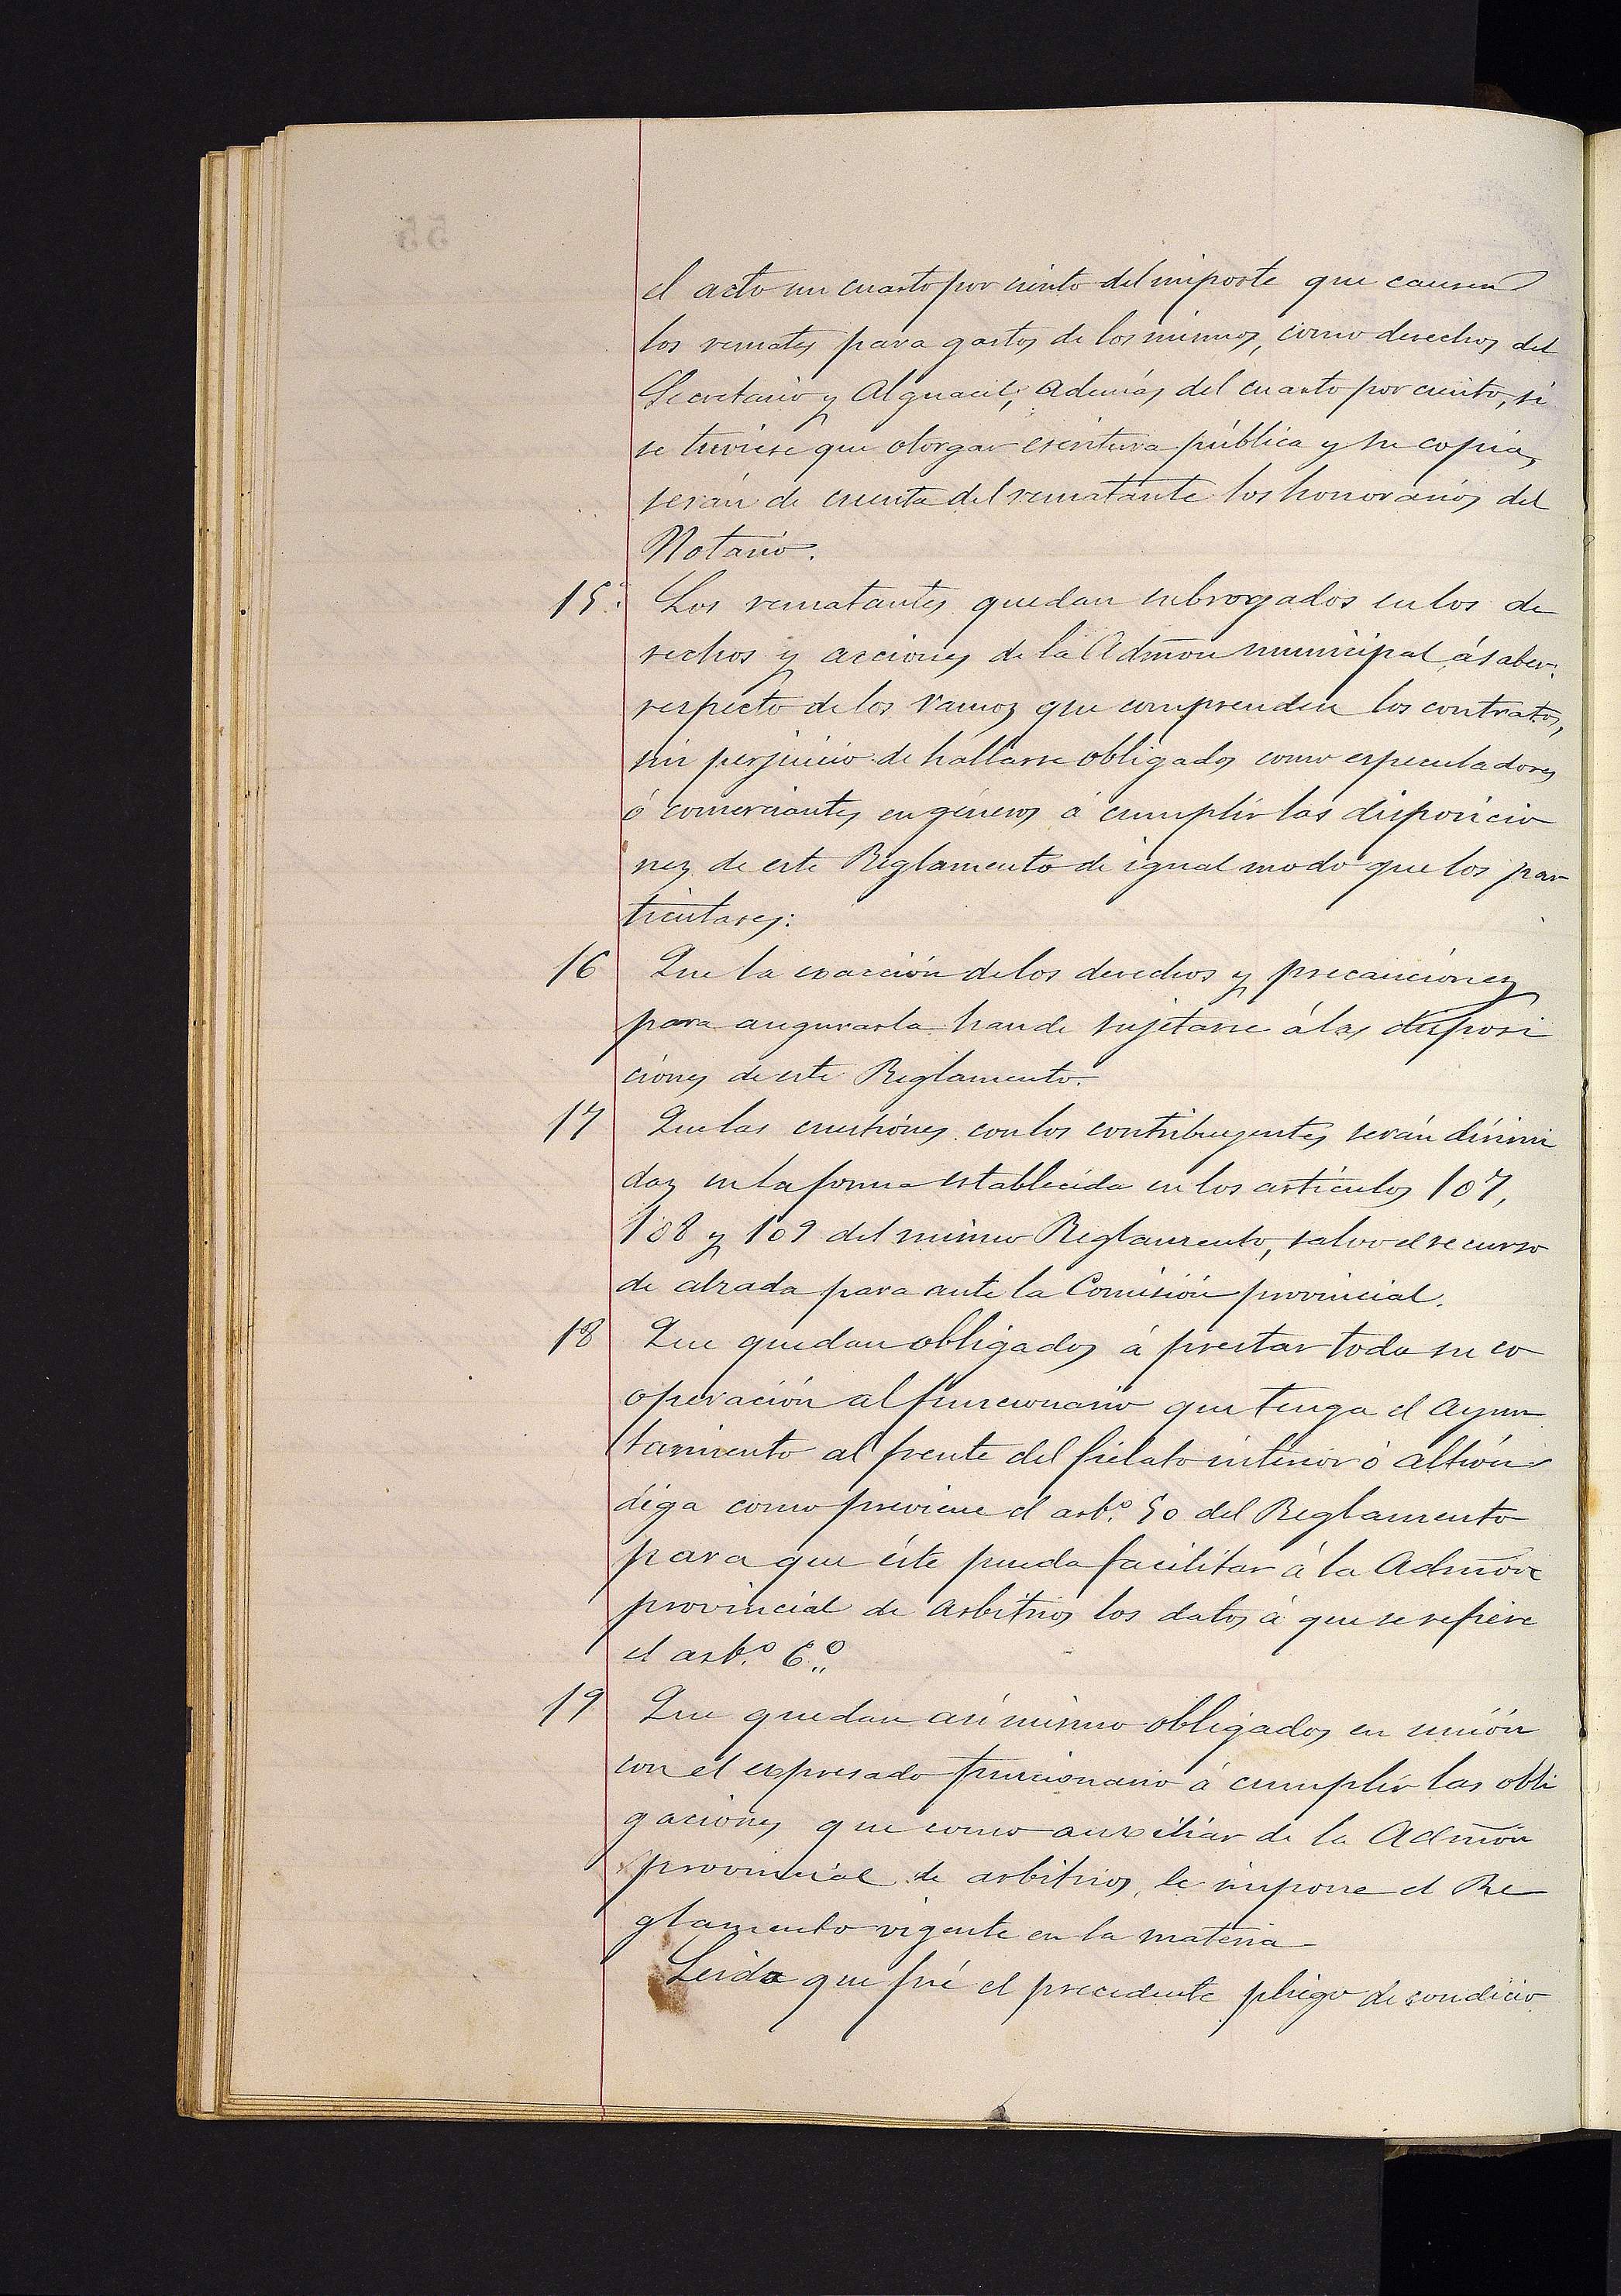 el acto un cuarto por ciento del importe que causen
los remates para gastos de los mismos, como derechos del
Secretario y Alguacil; Además del cuarto por ciento, si
se tuviese que otorgar escritura pública y su copia,
serán de cuenta del rematante los honorarios del
Notario.
15.ª Los rematantes quedan subrogados en los de
rechos y acciones de la Admon municipal á saber:
respecto de los ramos que comprenden los contratos,
sin perjuicio de hallarse obligados como especuladores
ó comerciantes en géneros á cumplir las disposicio
nes de este Reglamento de igual modo que los par
ticulares:
16 Que la exacción de los derechos y precauciones
para asegurarla han de sujetarse á las disposi
ciones de este Reglamento.
17 Que las cuestiones con los contribuyentes serán dirimi
das en la forma establecida en los artículos 107,
108 y 109 del mismo Reglamento, salvo el recurso
de alzada para ante la Comisión provincial.
18 Que quedan obligados á prestar toda su co
operación al funcionario que tenga el Ayun
tamiento al frente del fielato interior ó alhón
diga como previene el artº. 50 del Reglamento
para que éste pueda facilitar á la Admón
provincial de arbitrios los datos á que se refiere
el artº. 6º.
19 Que quedan asi mismo obligados en unión
con el expresado funcionario á cumplir las obli
gaciones que como auxiliar de la Admón
provincial de arbitrios, le impone el Re
glamento vigente en la materia
Leida que fué el precedente pliego de condicio